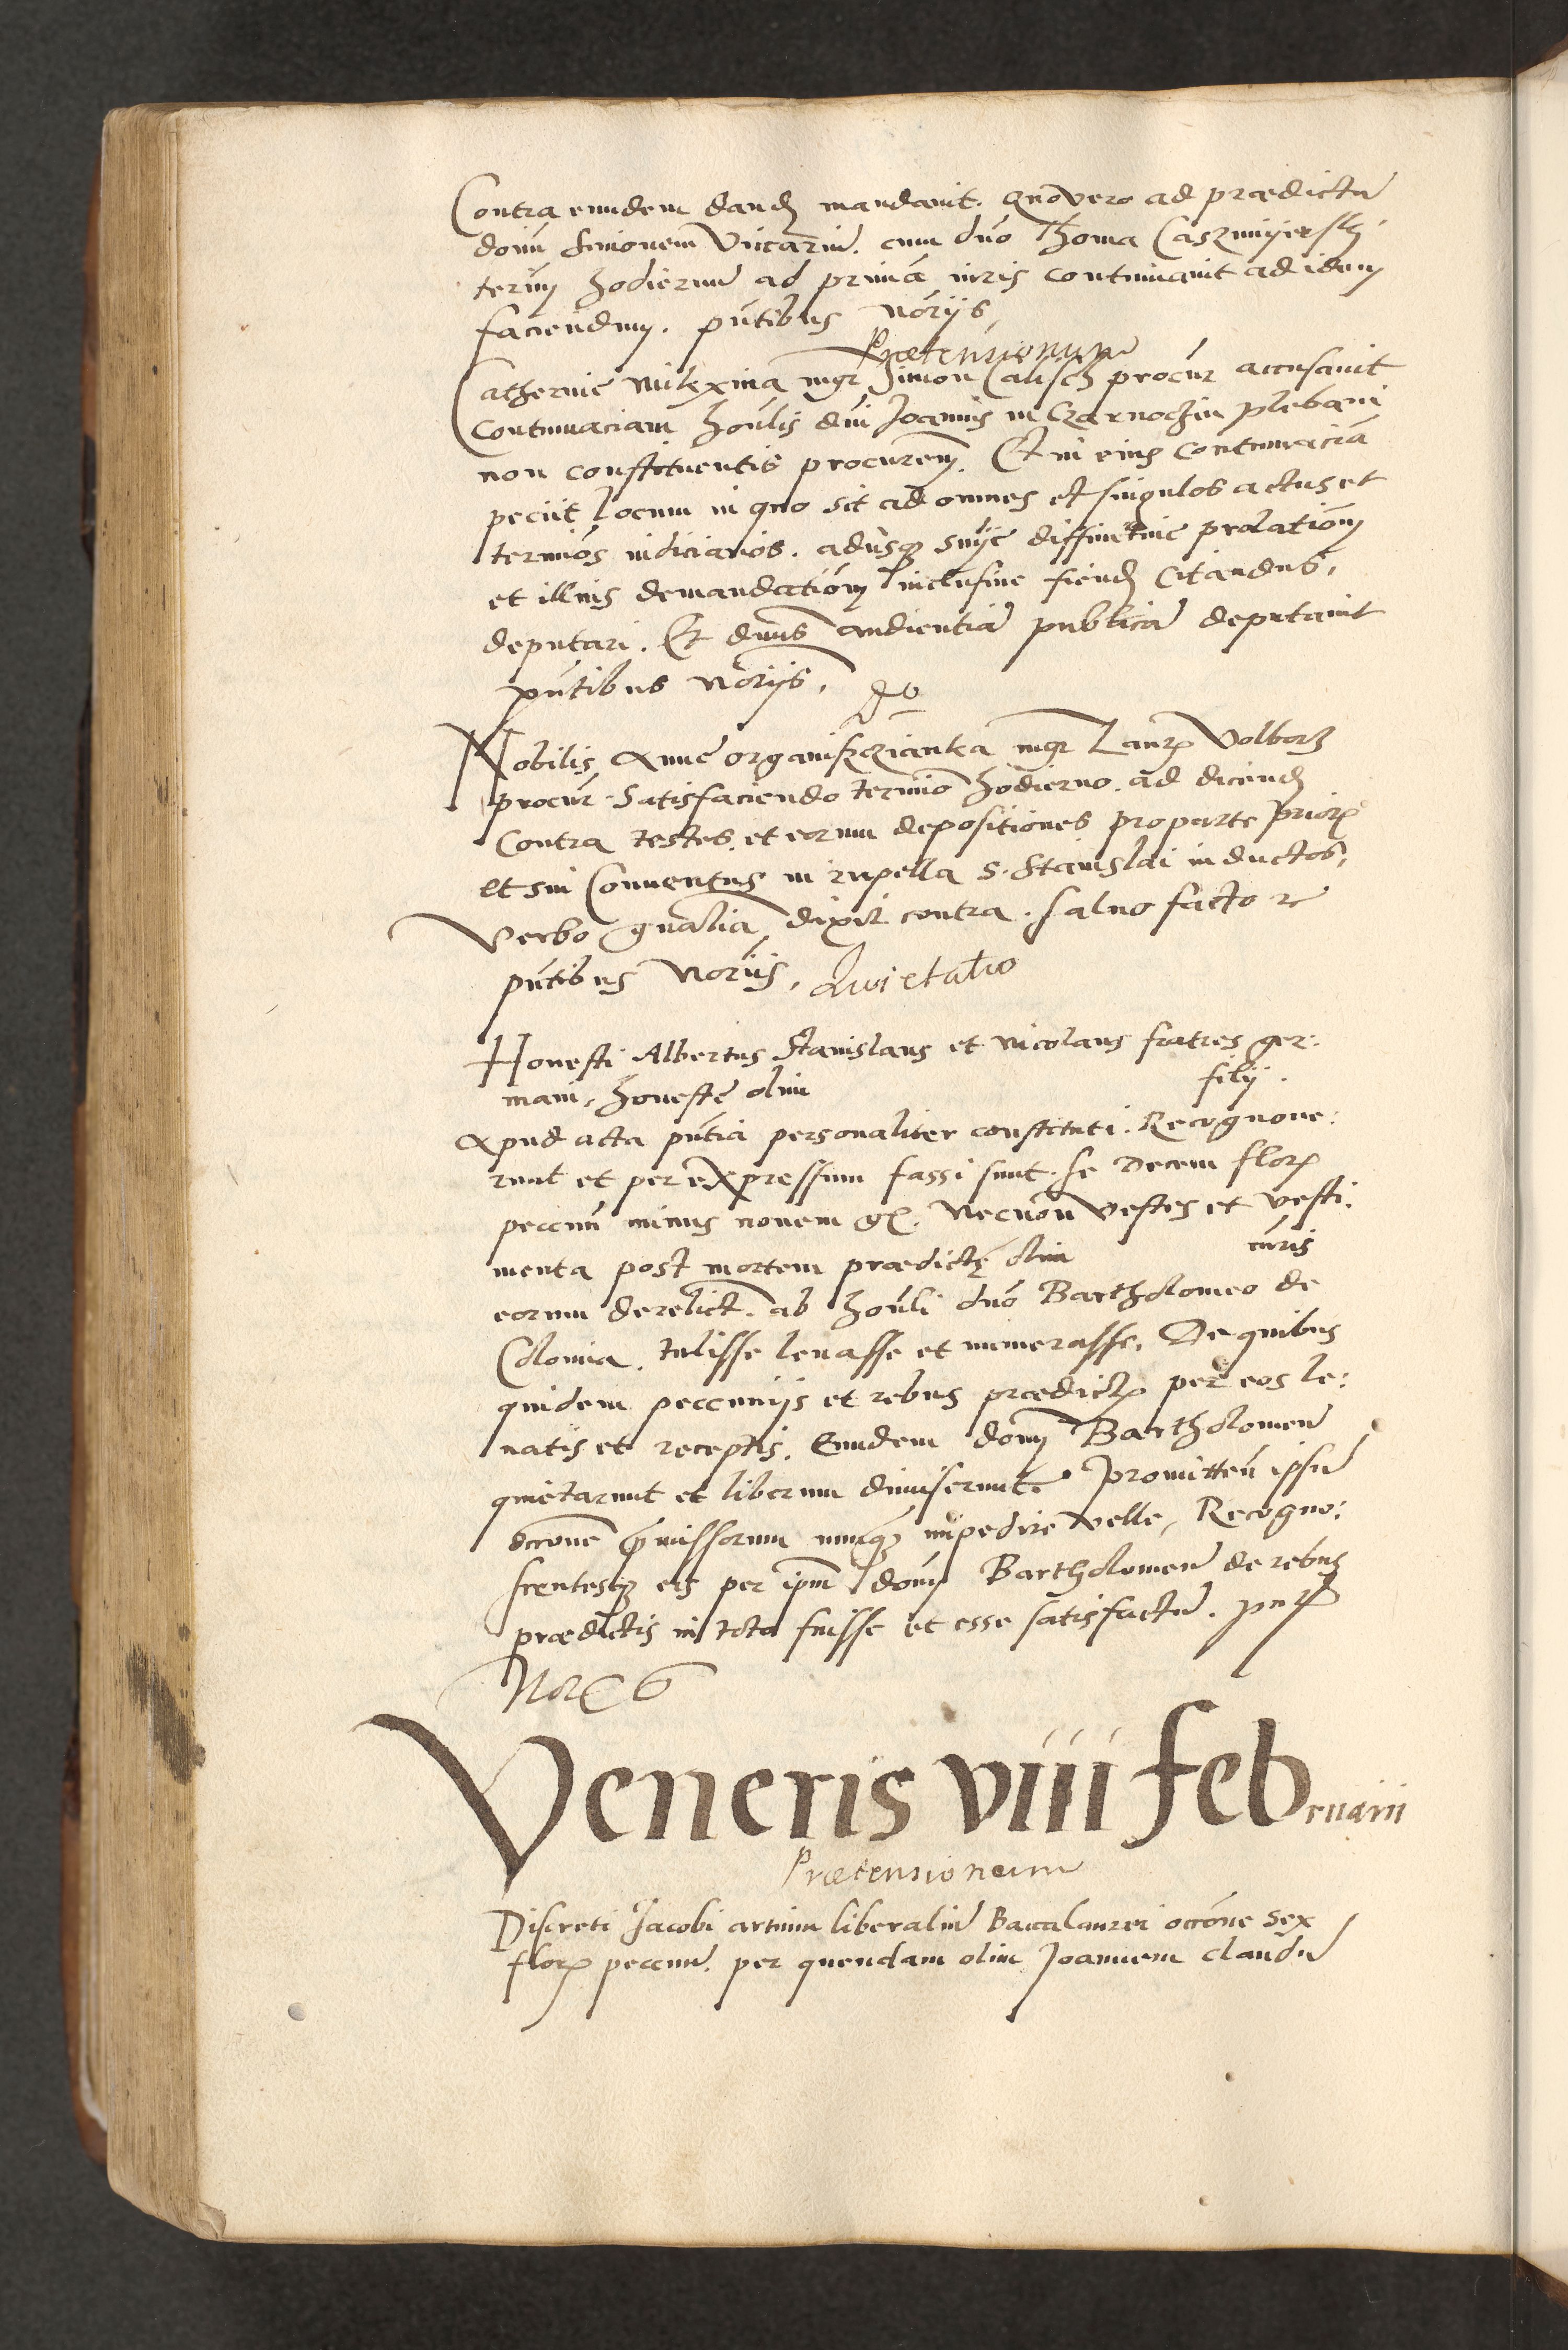 Contra eundem dandꝫ mandavit. Quo vero ad prædictū
dom̄ Simonem Vicariū. cum dn̄o Thoma Caszmijerskj
term̄ hodiernū ad primā iuris continuavit ad idem
faciendum. pn̄tibus nōrijs
Prætensionum
Catherine milexina mgr Simon Calisch procur̄ accusavit
contumaciam hon̄lis dn̄i Joannis in Czarnochin plebani
non constituentis procurem̄. Et in eius contumaciā
peciit locum in quo sit ad omnes et singulos actus et
termīos iudiciarios. adusqꝫ sn̄ijc diffinitive prolationem̄
et illius demandationem̄ inclusive fiendꝫ citandus,
deputari. Et dn̄us audientiā publicā deputavit
pn̄tibus nōrijs,
Nobilis Anne organiszcianka mgr Laurꝫ Volborz
procur̄. Satisfaciendo termīo hodierno. ad dicendꝫ
Contra testes. et eorum depositiones pro parte priorꝫ
et sui Conventus in rupella S. Stanislai inductos,
Verbo gn̄alia dixit contra. salvo facto &
pn̄tibus nōriis, Quietatio
Honesti Albertus Stanislaus et Nicolaus fratres ger:
mani, honeste olim filij.
Apud acta pn̄tia personaliter constituti. Recognove:
runt et per expressum fassi sunt. se decem florꝫ
peccun̄ minus novem gr̄. Necnon vestes et vesti:
menta post mortem prædictę olim m̄ris
eorum derelict̄. ab hon̄li dn̄o Bartholomeo de
Colonia. tulisse levasse et numerasse. De quibus
quidem peccunijs et rebus prædictꝫ per eos le:
vatis et receptis. Eundem dom̄ Bartholomeū
quietarunt et liberum dimiserunt. promitten̄ ipsū
occ̄one p̄missorum nunqꝫ impedire velle, Recogno:
scentesqꝫ eis per ip̄m dom̄ Bartholomeū de rebus
prædictis in toto fuisse et esse satisfactū. pn̄t
Nor
Veneris viiii februarii
Prætensionum
Discreti Jacobi artium liberaliū Baccalaurei occ̄one sex
florꝫ peccun̄. per quendam olim Joannem claudū